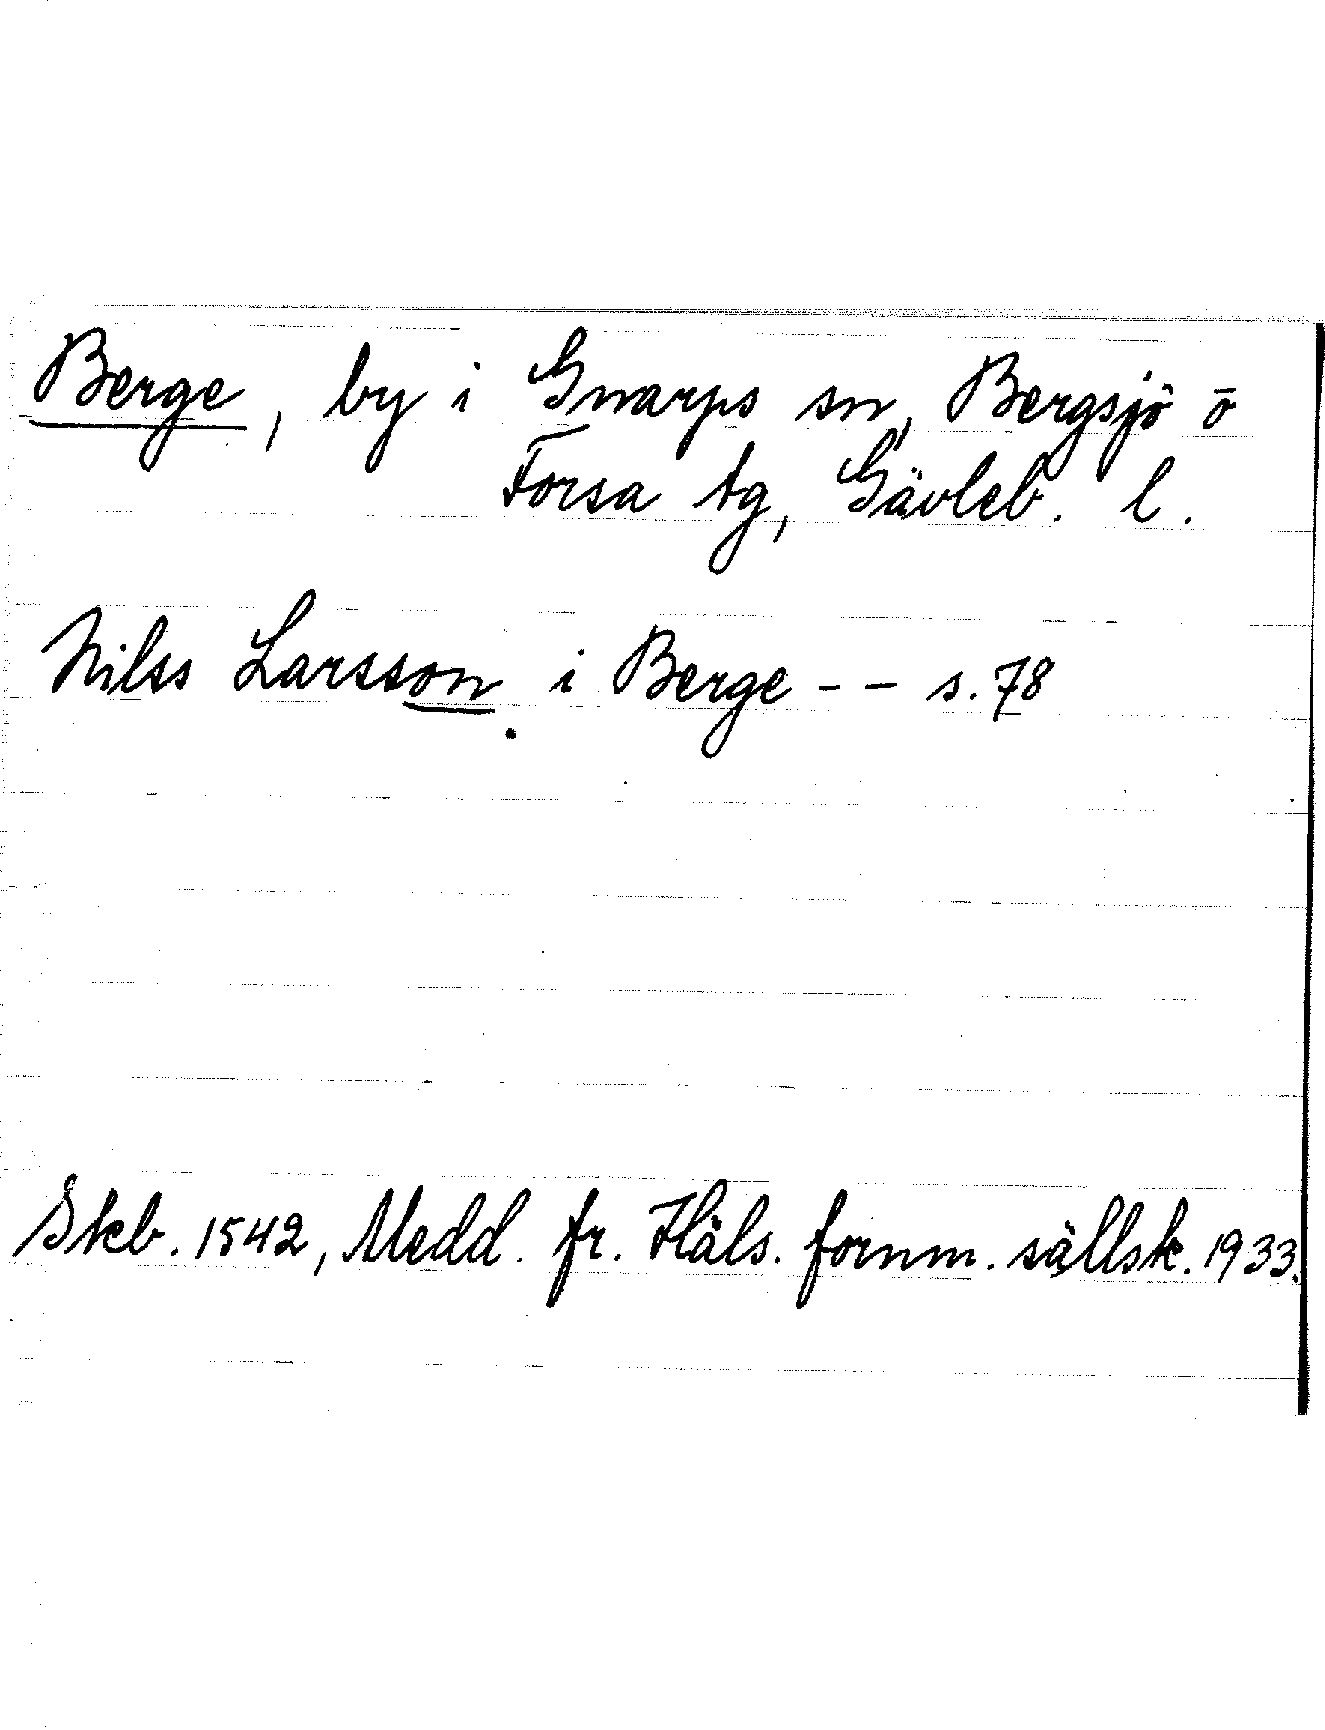 Berge, by i Gnarps sn, Bergsjö o
Forsa tg, Gävleb. l.
Nilss Larsson i Berge - - s. 78
Skb. 1542, Medd. fr. Häls. fornm. sällsk. 1933.